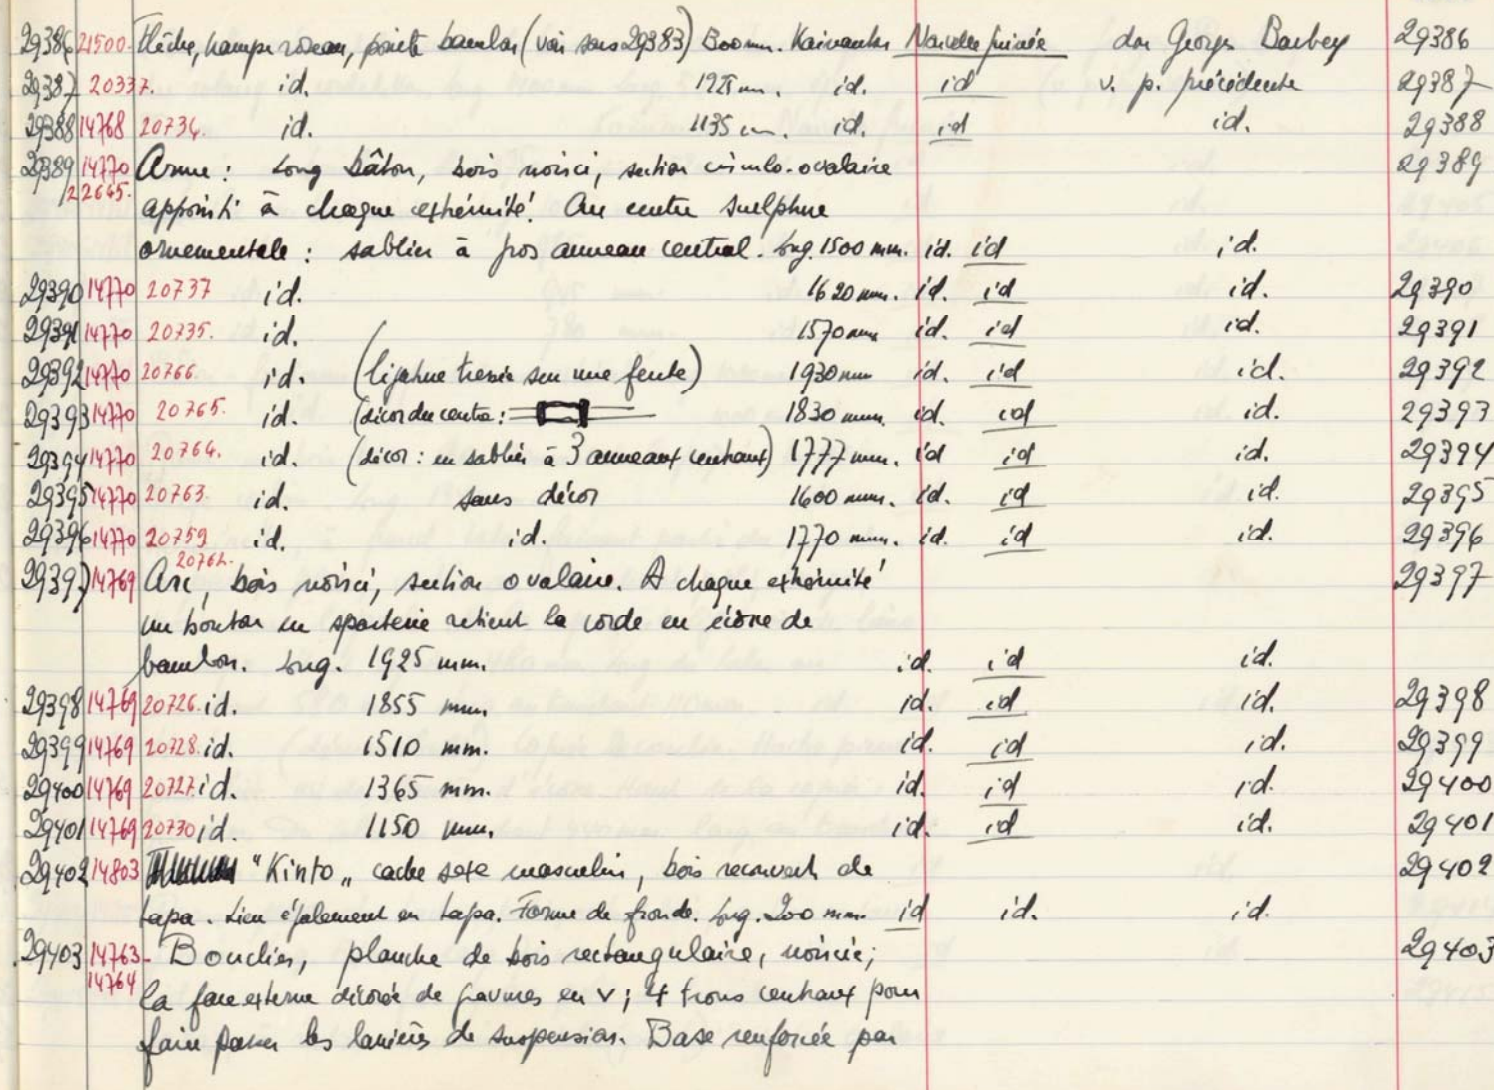 29386 21500 Flèche, hampe roseau, pointe bambou (voir sous 29383) 800 mm. Kaimantan Nouvelle Guinée don Georges Barbey 29386
29387 20337. id. 1925 mm. id. id v. p. précédente 29387
29388 14768 20734. id. 1135 mm. id. id id. 29388
29389 14770 Arme : Long bâton, bois noirci, section circulo-ovalaire 29389
/22645. appointi à chaque extrémité. Au centre sculpture
ornementale : sablier à gros anneau central. Long. 1500 mm. id. id id.
29390 14770 20737 id. 1620 mm. id. id id. 29390
29391 14770 20735. id. 1570 mm id. id id. 29391
29392 14770 20766. id. (ligature tressée sur une fente) 1930 mm id. id id. 29392
29393 14770 20765. id. (décor du centre : 1830 mm. id. id id. 29393
29394 14770 20764. id. (décor : en sablier à 3 anneaux centraux) 1777 mm. id id id. 29394
29395 14770 20763. id. sans décor 1600 mm. id. id id. 29395
29396 14770 20759 id. id. 1770 mm. id. id id. 29396
20762.
29397 14769 Arc, bois noirci, section ovalaire. A chaque extrémité 29397
un bouton en sparterie retient la corde en écorce de
bambou. Long. 1925 mm. id. id id.
29398 14769 20726. id. 1855 mm. id. id id. 29398
29399 14769 20728. id. 1510 mm. id. id id. 29399
29400 14769 20727. id. 1365 mm. id. id id. 29400
29401 14769 20730 id. 1150 mm. id. id id. 29401
29402 14803 "Kinto" cache sexe masculin, bois recouvert de 29402
tapa. Lien également en tapa. Forme de fronde. Long. 200 mm. id id. id.
29403 14763- Bouclier, planche de bois rectangulaire, noircie; 29403
14764 la face externe décorée de gravures en v ; 4 trous centraux pour
faire passer les lanières de suspension. Base renforcée par